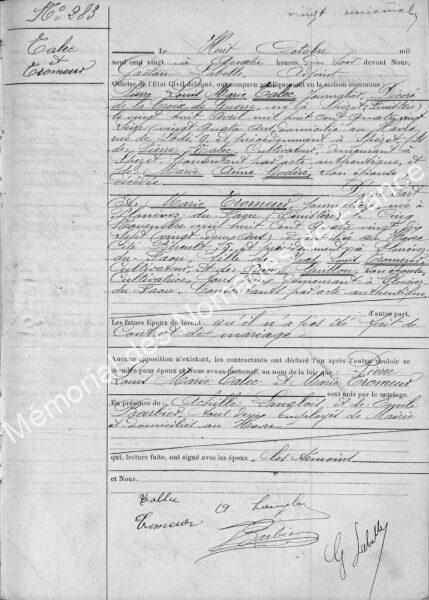 No 283
vingt unième
Talec
et
Tromeur
Le Huit Octobre mil
neuf cent vingt, à heures du soir devant Nous,
Gaëtan Labelle, Adjoint
Officier de l'Etat Civil délégué, ont comparu publiquement en la maison commune:
Pierre Louis Marie Talec, Journalier, Décoré
de la Croix de Guerre, né à Spézet (Finistère)
le vingt huit Avril mil huit cent quatre vingt
seize, vingt quatre ans, domicilié au Havre
rue de et précédemment à Spézet, fils
de Pierre Talec, Cultivateur, demeurant à
Spézet, Consentant par acte authentique, et
de Marie Anne Godéré, son épouse
décédée, D'une part
Et Marie Tromeur, Journalière, née à
Plonévez du Faou (Finistère) le Cinq
Novembre mil huit cent quatre vingt dix
sept, vingt ans, domiciliée au Havre
Cité et précédemment à Plonévez
du Faou, fille de Yves Louis Tromeur
Cultivateur, et de Guillou, son épouse,
Cultivatrice, tous deux demeurant à Plonévez
du Faou, Consentants par acte authentique,
d'autre part.
Les futurs Epoux déclarent qu'il n'a pas été fait de
Contrat de mariage.
Aucune opposition n'existant, les contractants ont déclaré l'un après l'autre vouloir se
prendre pour époux et Nous avons prononcé, au nom de la loi que: Pierre
Louis Marie Talec et Marie Tromeur
sont unis par le mariage.
En présence de: Achille Langlois et de Emile
Barbier, tous deux employés de Mairie
et domiciliés au Havre
qui, lecture faite, ont signé avec les époux, les témoins
et Nous.
Tallec
A. Langlois
Tromeur
Barbier
G Labelle
Mémorial des Normands de France